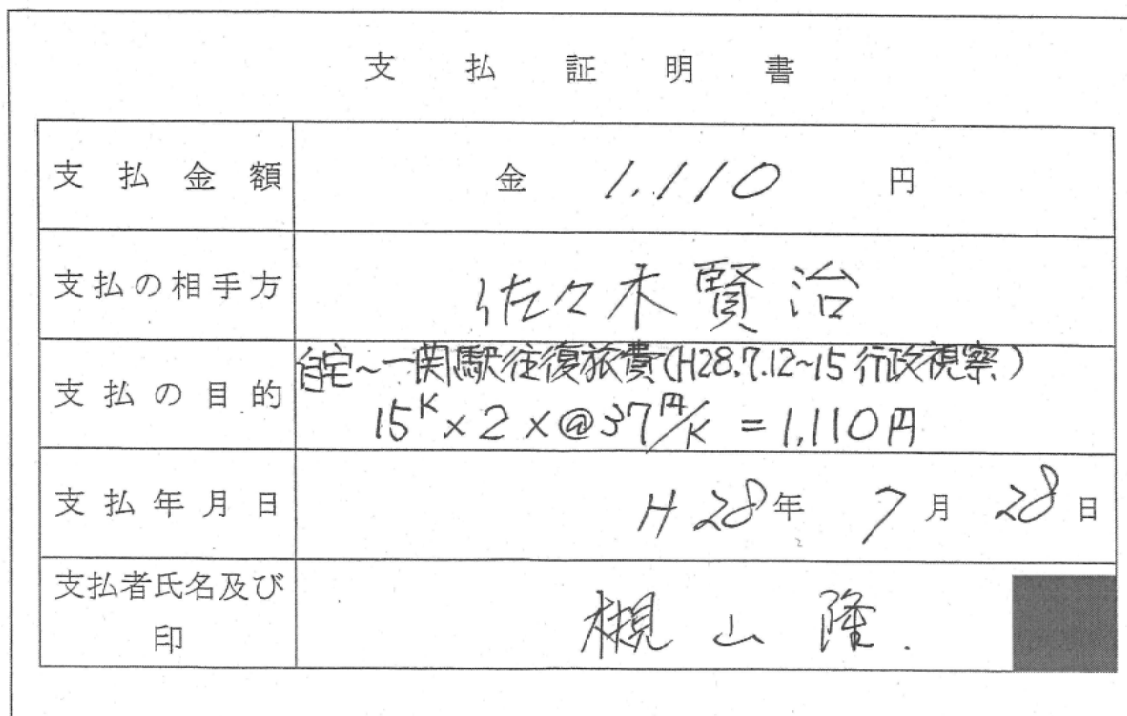 支払証明書
支払金額 金 1,110 円
支払の相手方 佐々木賢治
支払の目的 自宅~一関駅往復旅費(H28.7.12~15行政視察)
15K×2×@37円/K=1,110円
支払年月日 H28年 7月 28日
支払者氏名及び
印
槻山隆.